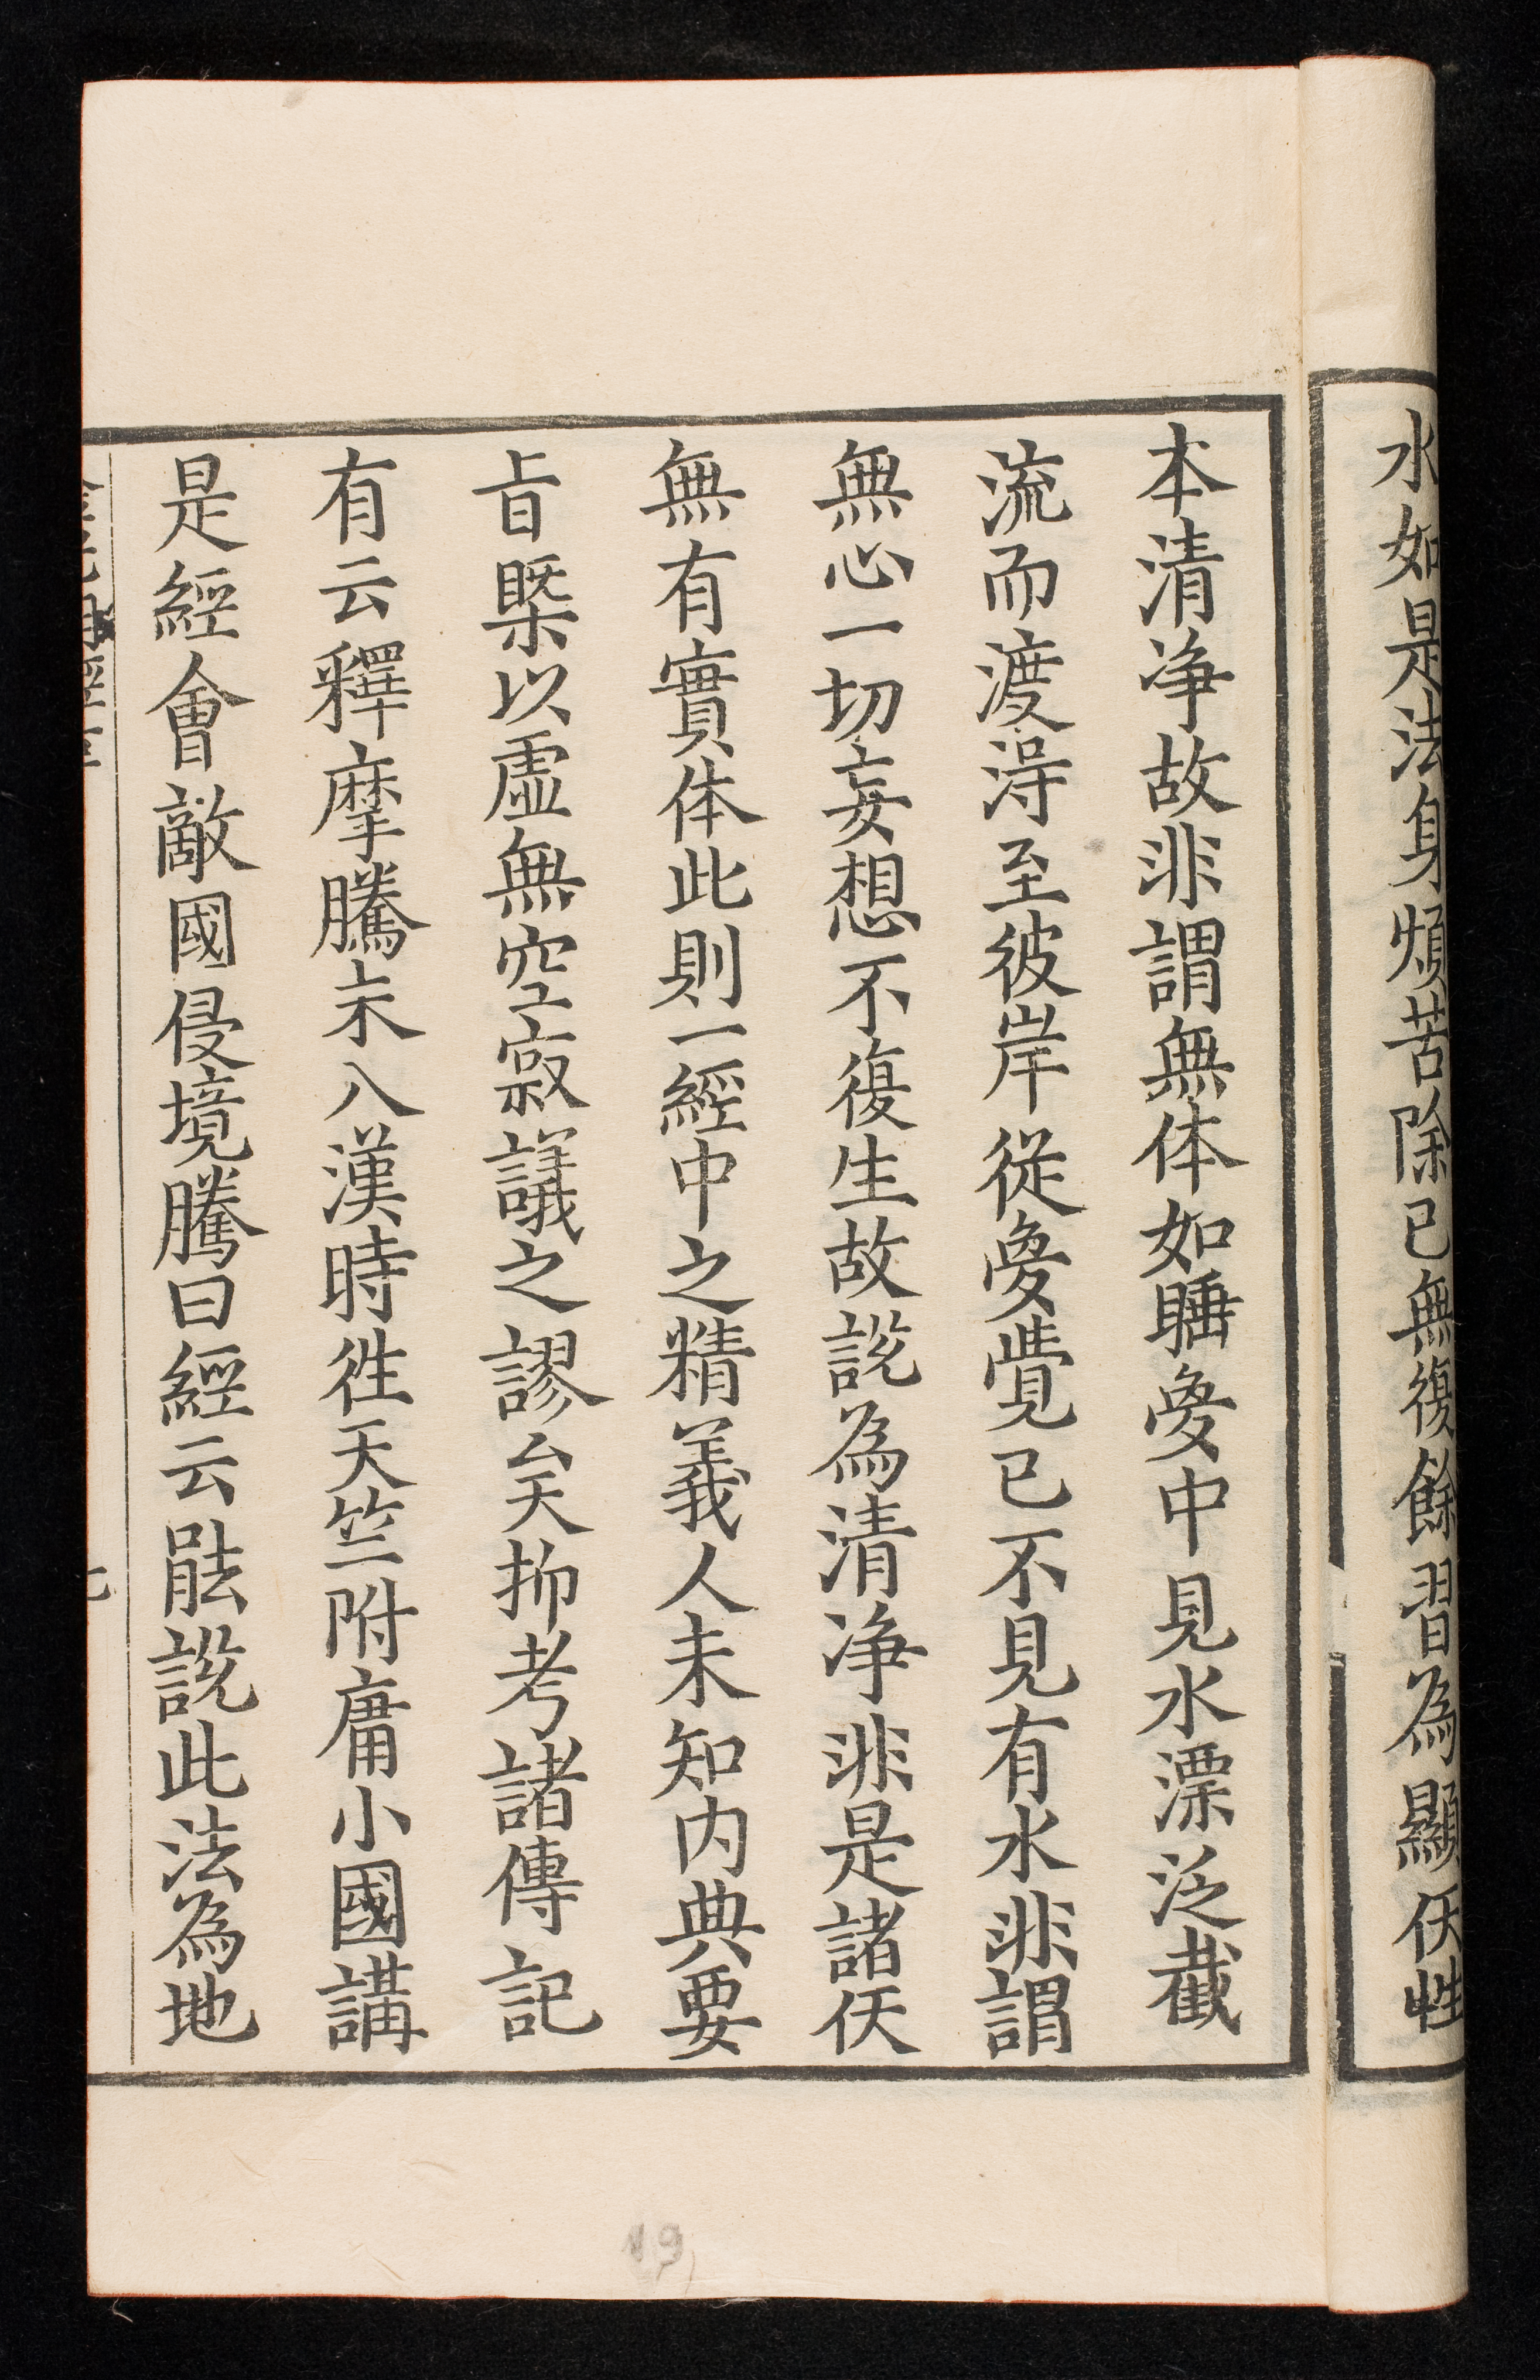 水如是法身煩苦除已無復餘習為顯仸性
本清净故非謂無体如睡夢中見水漂泛截
流而渡淂至彼岸従夢覺已不見有水非謂
無心一切妄想不復生故説為清净非是諸仸
無有實体此則一經中之精義人未知内典要
旨槩以虚無空寂議之謬矣抑考諸傳記
有云釋摩騰未入漢時徃天竺附庸小國講
是經會敵國侵境騰曰經云能説此法為地
19